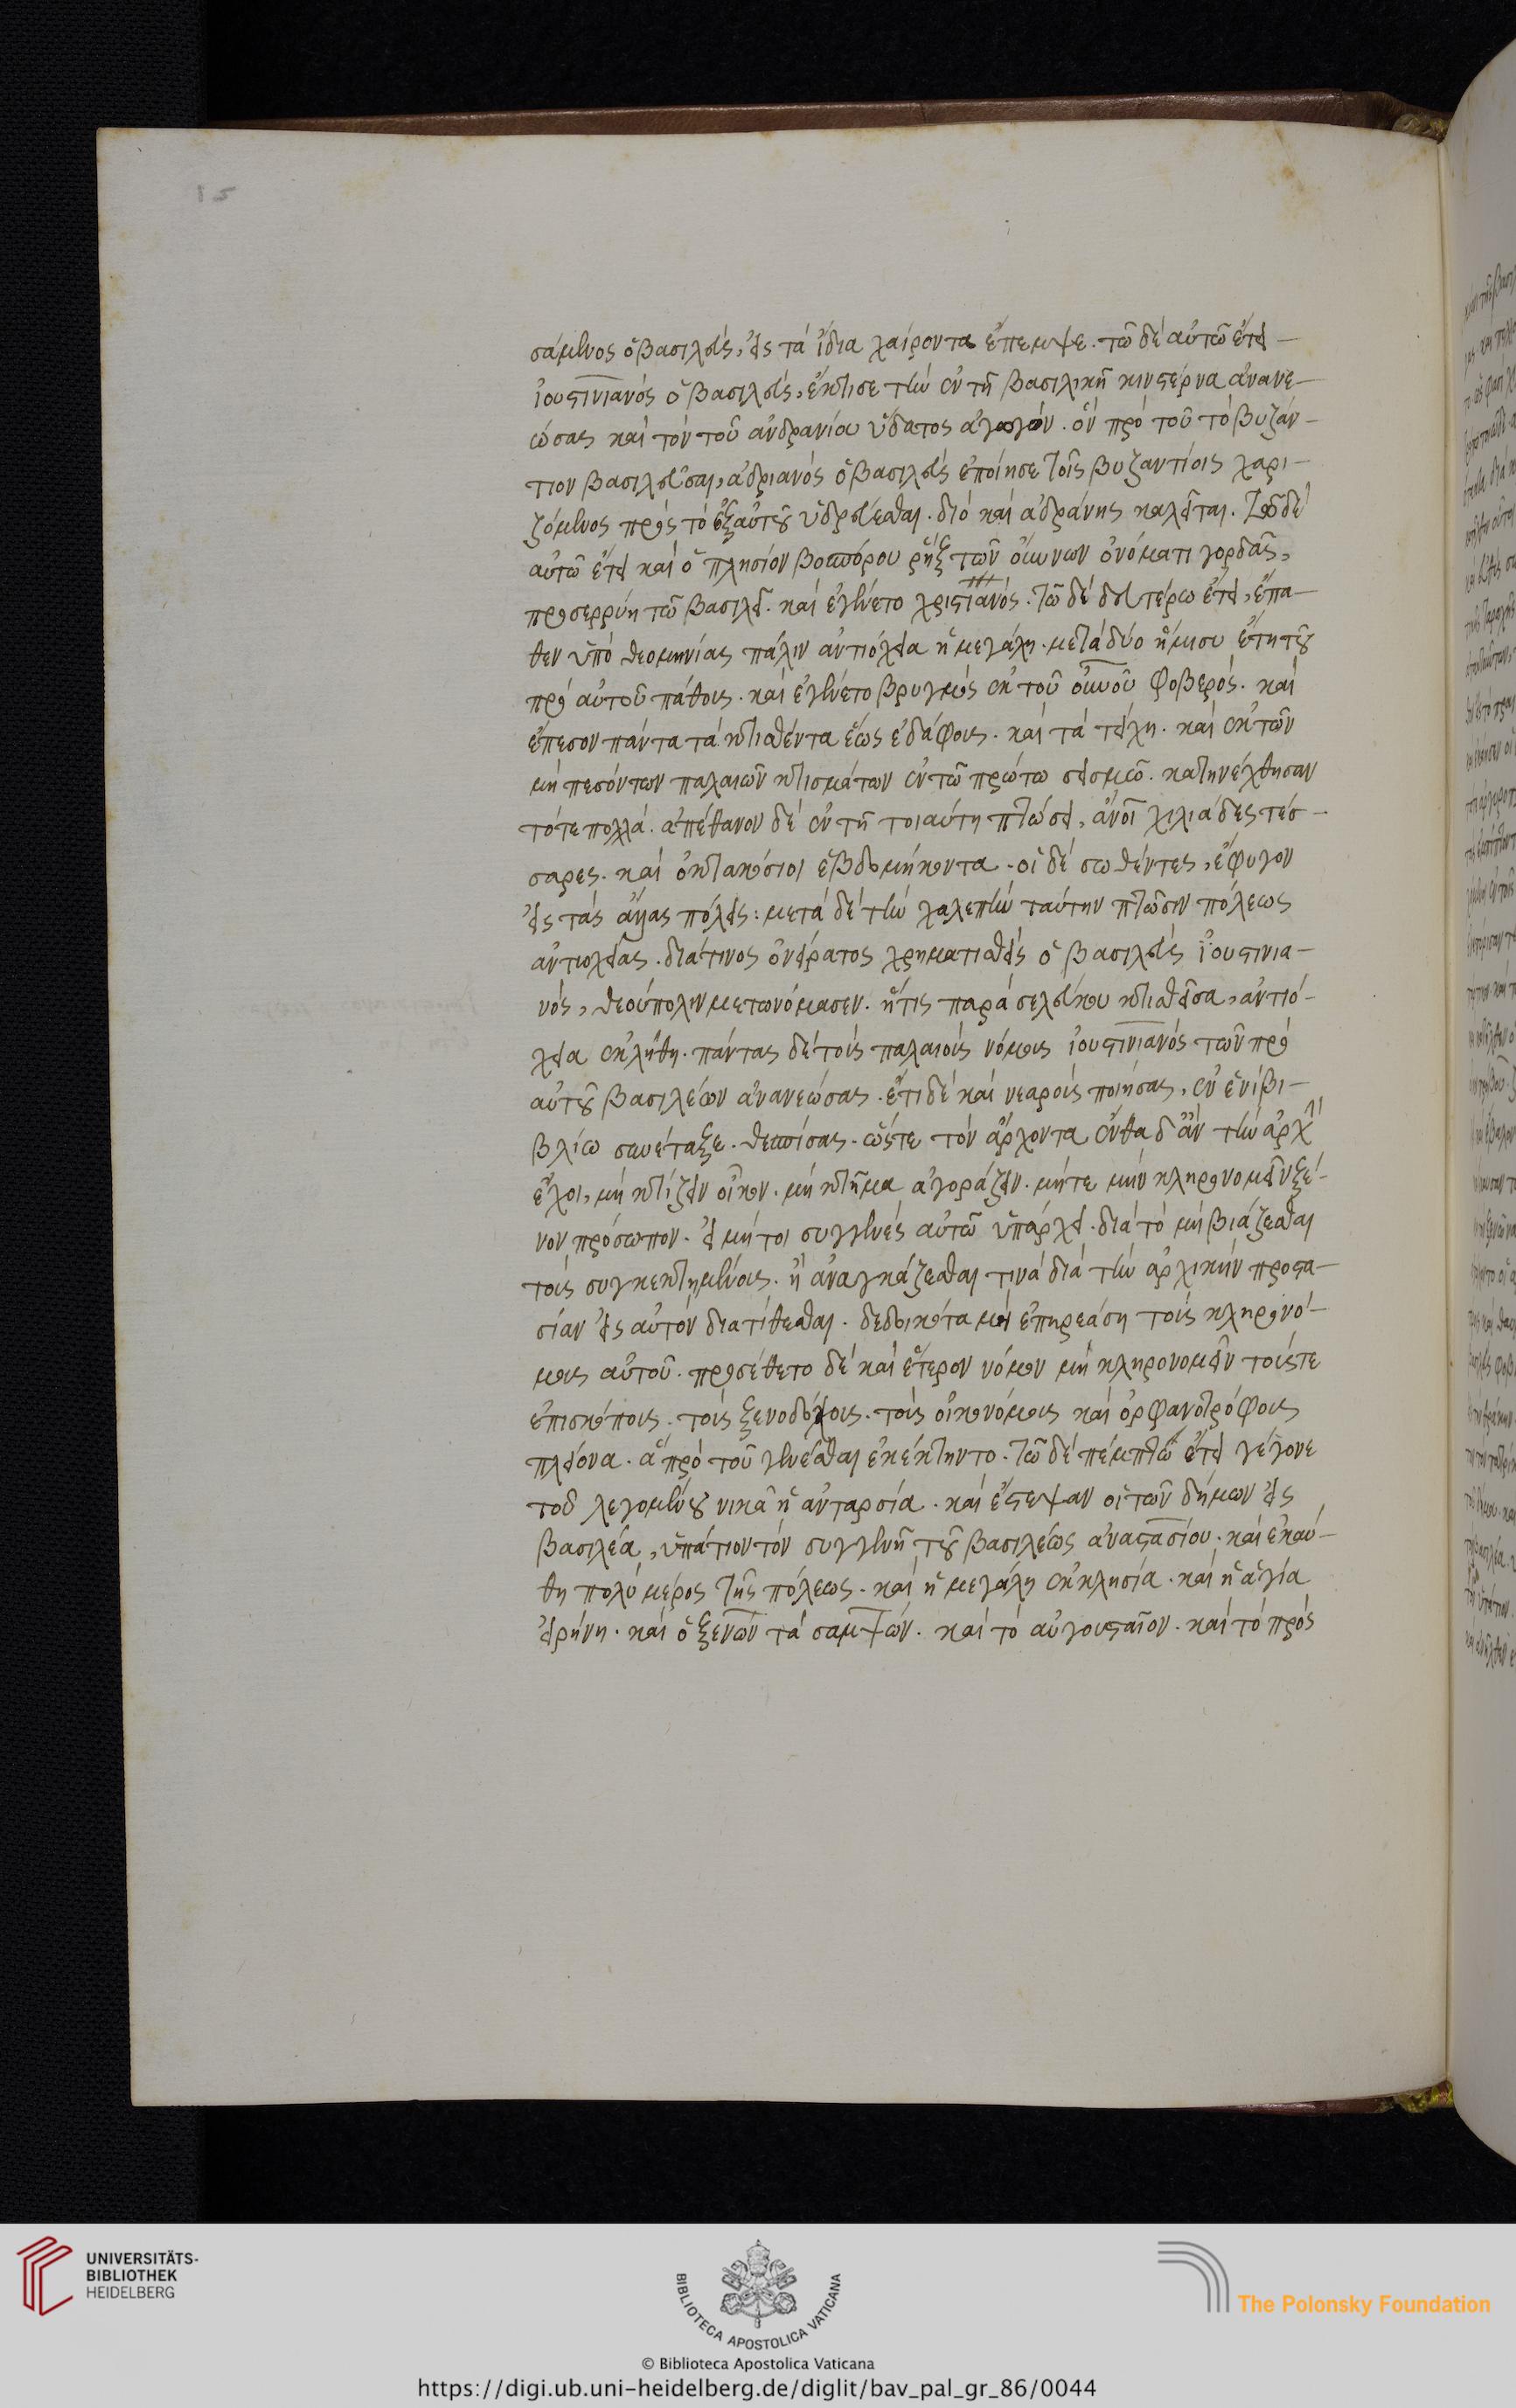 σάμενος ὁ βασιλεύς, εἰς τὰ ἴδια χαίροντα ἔπεμψε. τῶ δὲ αὐτῶ ἔτει
ἰουστινιανός ὁ βασιλεύς, ἔκτισε τὴν ἐν τῆ βασιλικῆ κινστέρνα ἀνανε-
ώσας καὶ τὸν τοῦ ἀνδρανίου ὕδατος ἀγωγόν. ὃν πρὸ τοῦ τὸ βυζάν-
τιον βασιλεῦσαι, ἀδριανός ὁ βασιλεύς ἐποίησε τοῖς βυζαντίοις χαρι-
ζόμενος πρὸς τὸ ἐξ αὐτοῦ ὑδρεύεσθαι. διὸ καὶ ἀδράνης καλεῖται. τῶ δὲ
αὐτῶ ἔτει καὶ ὁ πλησίον βοσπόρου ῥήξ τῶν οὕννων ὀνόματι γορδᾶς,
προσερρύη τῶ βασιλεῖ. καὶ ἐγένετο χριστιανός. τῶ δὲ δευτέρω ἔτει, ἔπα-
θεν ὑπὸ θεομηνίας πάλιν ἀντιόχεια ἡ μεγάλη. μετὰ δύο ἥμισυ ἔτη τοῦ
πρὸ αὐτοῦ πάθους. καὶ ἐγένετο βρυγμὸς ἐκ τοῦ οὐνοῦ φοβερός. καὶ
ἔπεσον πάντα τὰ κτισθέντα ἕως ἐδάφους. καὶ τὰ τείχη. καὶ ἐκ τῶν
μὴ πεσόντων παλαιῶν κτισμάτων ἐν τῶ πρώτω σεισμῶ. κατηνέχθησαν
τότε πολλά. ἀπέθανον δὲ ἐν τῆ τοιαύτη πτώσει, ἄνοι χιλιάδες τέσ-
σαρες. καὶ ὀκτακόσιοι ἑβδομήκοντα. οἱ δὲ σωθέντες, ἔφυγον
εἰς τὰς ἄλλας πόλεις: μετὰ δὲ τὴν χαλεπὴν ταύτην πτῶσιν πόλεως
ἀντιοχείας. διά τινος ὀνείρατος χρηματισθείς ὁ βασιλεύς ἰουστινια-
νός, θεούπολιν μετωνόμασεν. ἥτις παρὰ σελεύκου κτισθεῖσα, ἀντιό-
χεια ἐκλήθη. πάντας δὲ τοὺς παλαιοὺς νόμους ἰουστινιανός τῶν πρὸ
αὐτοῦ βασιλέων ἀνανεώσας. ἔτι δὲ καὶ νεαροὺς ποιήσας, ἐν ἑνὶ βι-
βλίω συνέταξε. θεσπίσας. ὥστε τὸν ἄρχοντα ἔνθα δ' ἂν τὴν ἀρχὴν
ἔχοι, μὴ κτίζειν οἶκον. μὴ κτῆμα ἀγοράζειν. μήτε μὴν κληρονομεῖν ξέ-
νον πρόσωπον. εἰ μήτοι συγγενὲς αὐτῶ ὑπάρχει. διὰ τὸ μὴ βιάζεσθαι
τοὺς συγκεκτημένους. ἢ ἀναγκάζεσθαι τινὰ διὰ τὴν ἀρχικὴν προστα-
σίαν εἰς αὐτὸν διατίθεσθαι. δεδοικότα μὴ ἐπηρεάση τοὺς κληρονό-
μους αὐτοῦ. προσέθετο δὲ καὶ ἕτερον νόμον μὴ κληρονομεῖν τούς τε
ἐπισκόπους. τοὺς ξενοδόχους. τοὺς οἰκονόμους καὶ ὀρφανοτρόφους
πλείονα. ἃ πρὸ τοῦ γενέσθαι ἐκέκτηντο. τῶ δὲ πέμπτω ἔτει γέγονε
τοῦ λεγομένου νικᾶ ἡ ἀνταρσία. καὶ ἔστεψαν οἱ τῶν δήμων εἰς
βασιλέα, ὑπάτιον τὸν συγγενῆ τοῦ βασιλέως ἀναστασίου. καὶ ἐκαύ-
θη πολὺ μέρος τῆς πόλεως. καὶ ἡ μεγάλη ἐκκλησία. καὶ ἡ ἁγία
εἰρήνη. καὶ ὁ ξενὼν τὰ σαμψών. καὶ τὸ αὐγουσταῖον. καὶ τὸ πρὸς
UNIVERSITÄTS-
BIBLIOTHEK
HEIDELBERG
BIBLIOTECA APOSTOLICA VATICANA
The Polonsky Foundation
© Biblioteca Apostolica Vaticana
https://digi.ub.uni-heidelberg.de/diglit/bav_pal_gr_86/0044